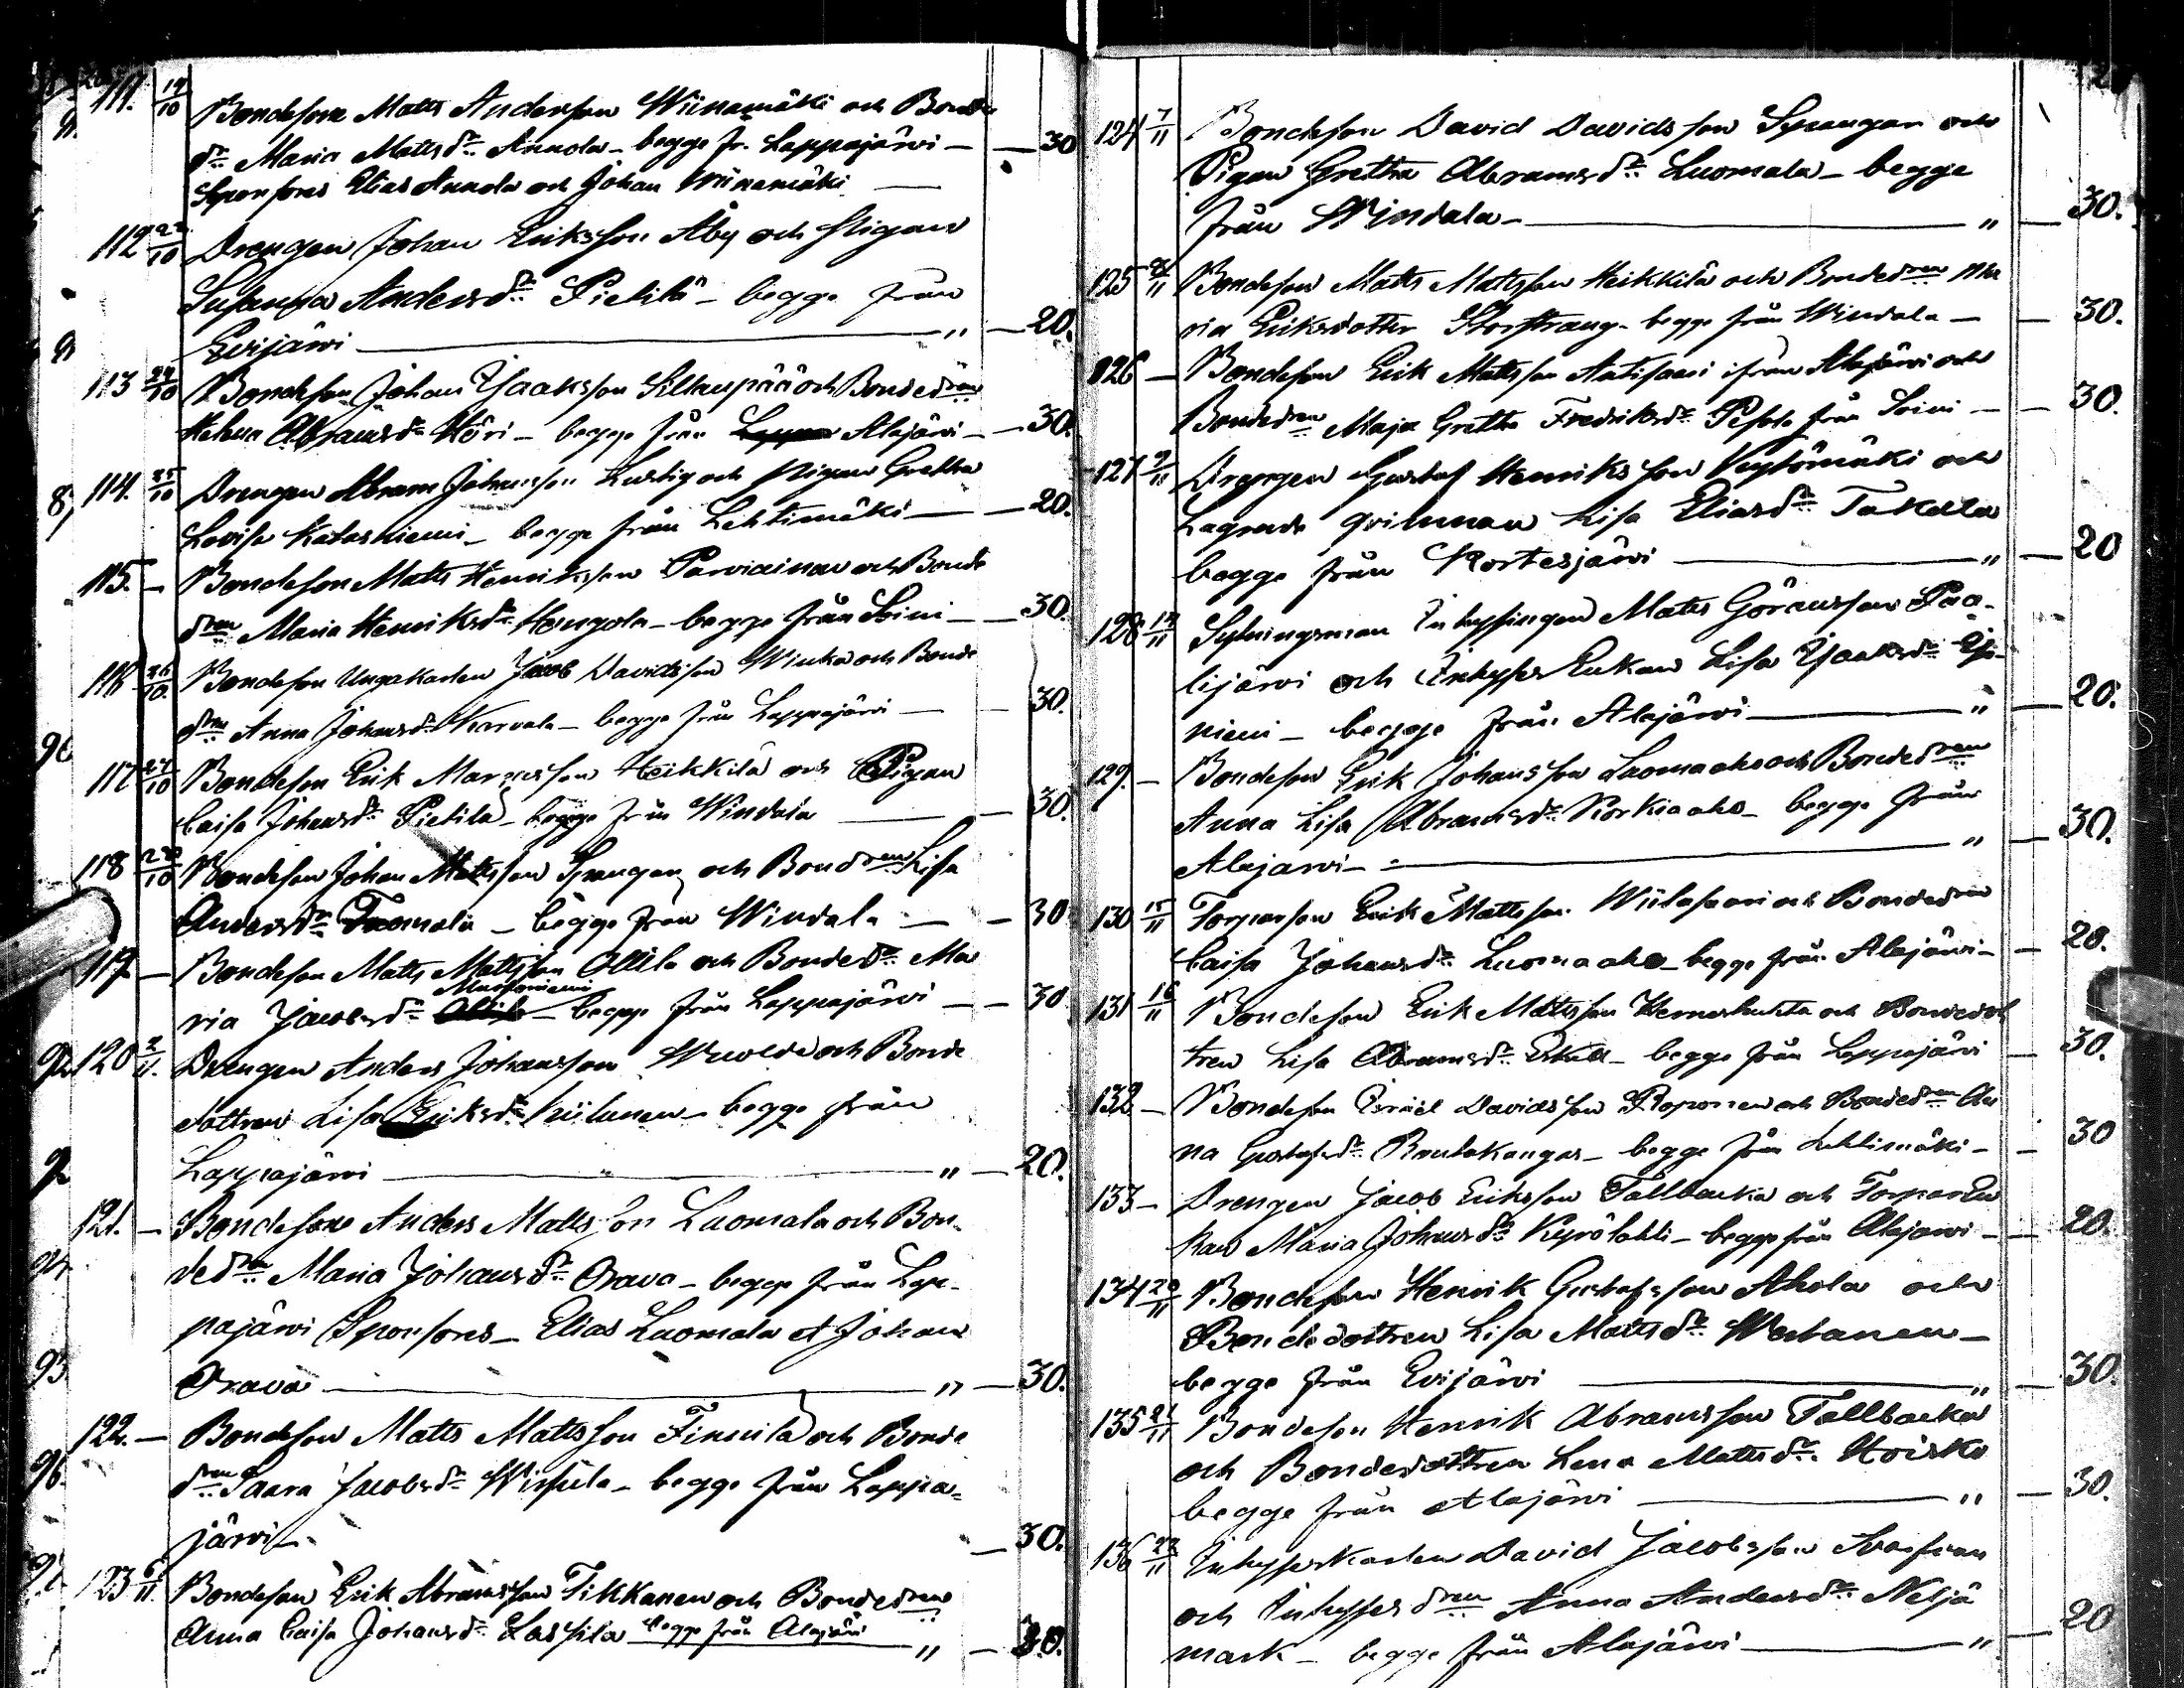 111. 19/10 Bondesone Matts Anderson Wiinamäki och Bonde
dr. Maria Mattsdr. Annola - begge fr. Lappajärvi - 30
Sponsores Elias Annola och Johan Wiinamäki
112 22/10 Drengen Johan Eriksson Åby och Pigan
Susanna Andersdr. Pietilä - begge från
Evijärvi " - 20.
113 24/10 Bondeson Johan Isaksson Silkupää och Bondedren
Helena Abramsdr. Höri - begge från Alajärvi - 30.
114. 25/10 Drengen Abram Johansson Lustig och pigan Gretha
Lovisa Kataskiemi - begge från Lehtimäki - 20.
115. - Bondeson Matts Henriksson Parviainen och Bonde
dren Maria Henriksdr. Hangola - begge från Soini - 30.
116 26/10 Bondeson Ungakarlen Jacob Davidsson Winka och Bonde
dren Anna Johansdr. Karvala - begge från Lappajärvi - 30.
117 27/10 Bondeson Erik Marcusson Heikkilä och Pigan
Caisa Johansdr. Pietilä - begge från Windala - 30.
118 /10 Bondeson Johan Mattsson Spangar och Bondren Lisa
Andersdr. Tuomala - begge från Windala - 30
119. - Bondeson Matts Mattsson Ollila och Bondedr. Ma
ria Jacobsdr. begge från Lappajärvi - 30
120 3/11. Drengen Anders Johansson och Bonde
dottren Lisa Eriksdr. Kiilunen - begge från
Lappajärvi " - 20.
121. - Bondesone Anders Mattsson Luomala och Bon-
dedren Maria Johansdr. Orava - begge från Lap-
pajärvi Sponsores - Elias Luomala et Johan
Orava " - 30.
122. - Bondeson Matts Mattsson Finnilä och Bonde
dren Saara Jacobsdr. Wisuila - begge från Lappa-
järvi - 30.
123 6/11 Bondeson Erik Abramsson Tikkanen och Bondedren
Anna Caisa Johansdr. Lassila begge från Alajärvi " - 20.
124 7/11 Bondeson David Davidsson Spangar och
Pigan Gretha Abramsdr. Luomala - begge
från Windala - " - 30.
125 8/11 Bondeson Matts Mattsson Heikkilä och Bondedren Ma
ria Eriksdotter Storstrang - begge från Windala - 30.
126 - Bondeson Erik Mattsson Autisaari ifrån Alajärvi och
Bondedren Maja Gretha Fredriksdr. Pesola från Soini - 30.
127 9/11 Drengen Gustaf Henriksson Kytömäki och
Lagrade qvinnan Lisa Eliasdr. Takala
begge från Kortesjärvi " - 20
128 14/11 Sytningsman Inhysingen Matts Göransson Paa-
lijärvi och Inhyses Enkan Lisa Isaksdr.
niemi - begge från Alajärvi " - 20.
129. - Bondeson Erik Johansson Luomaaho och Bondedren
Anna Lisa Abramsdr. Korkiaaho - begge från
Alajarvi - " - 30.
130 15/11 Torparson Erik Mattsson Wiitasaari och Bondedren
Caisa Johansdr. Luomaaho - begge från Alajärvi - 20.
131 16/11 Bondeson Erik Mattsson Hernesluhta och Bondedot
tren Lisa Abramsdr. - begge från Lappajärvi - 30.
132 - Bondeson Israel Davidsson Roponen och Bondedren An
na Gustafsdr. Rautakangas - begge från Lehtimäki - 30
133 - Drengen Jacob Eriksson Tallbacka och TorparEn
kan Maria Johansdr. Kyrölahti - begge från Alajärvi - 20.
134 20/11 Bondeson Henrik Gustafsson Ahola och
Bondedottren Lisa Mattsdr. Wertanen -
begge från Evijärvi " - 30.
135 21/11 Bondeson Henrik Abramsson Tallbacka
och Bondedottren Lena Mattsdr. Hoisko
begge från Alajärvi " - 30.
136 22/11 Inhyseskarlen David Jacobsson
och Inhyses dren Anna Andersdr. Neljä
mark - begge från Alajärvi " - 20